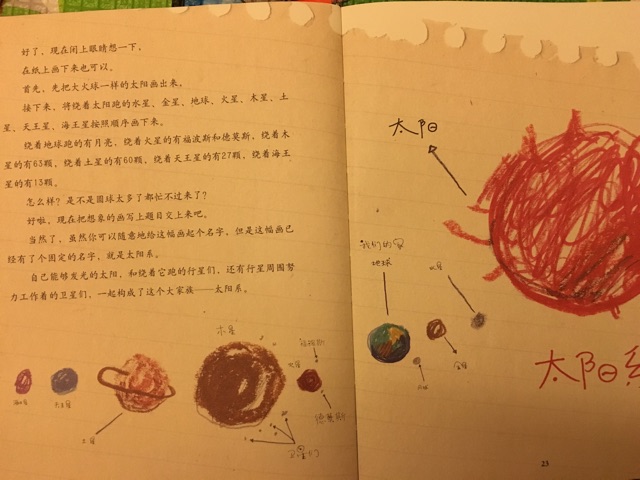 好了,现在闭上眼睛想一下,
在纸上画下来也可以。
首先,先把大火球一样的太阳画出来,
接下来,将绕着太阳跑的水星、金星、地球、火星、木星、土
星、天王星、海王星按照顺序画下来。
绕着地球跑的有月亮,绕着火星的有福波斯和德莫斯,绕着木
星的有63颗,绕着土星的有60颗,绕着天王星的有27颗,绕着海王
星的有13颗。
怎么样?是不是圆球太多了都忙不过来了?
好啦,现在把想象的画写上题目交上来吧。
当然了,虽然你可以随意地给这幅画起个名字,但是这幅画已
经有了个固定的名字,就是太阳系。
自己能够发光的太阳,和绕着它跑的行星们,还有行星周围努
力工作着的卫星们,一起构成了这个大家族——太阳系。
木星
福波斯
火星
海王星
天王星
土星
德莫斯
卫星们
太阳
我们的
地球
水星
金星
月亮
太阳系
23